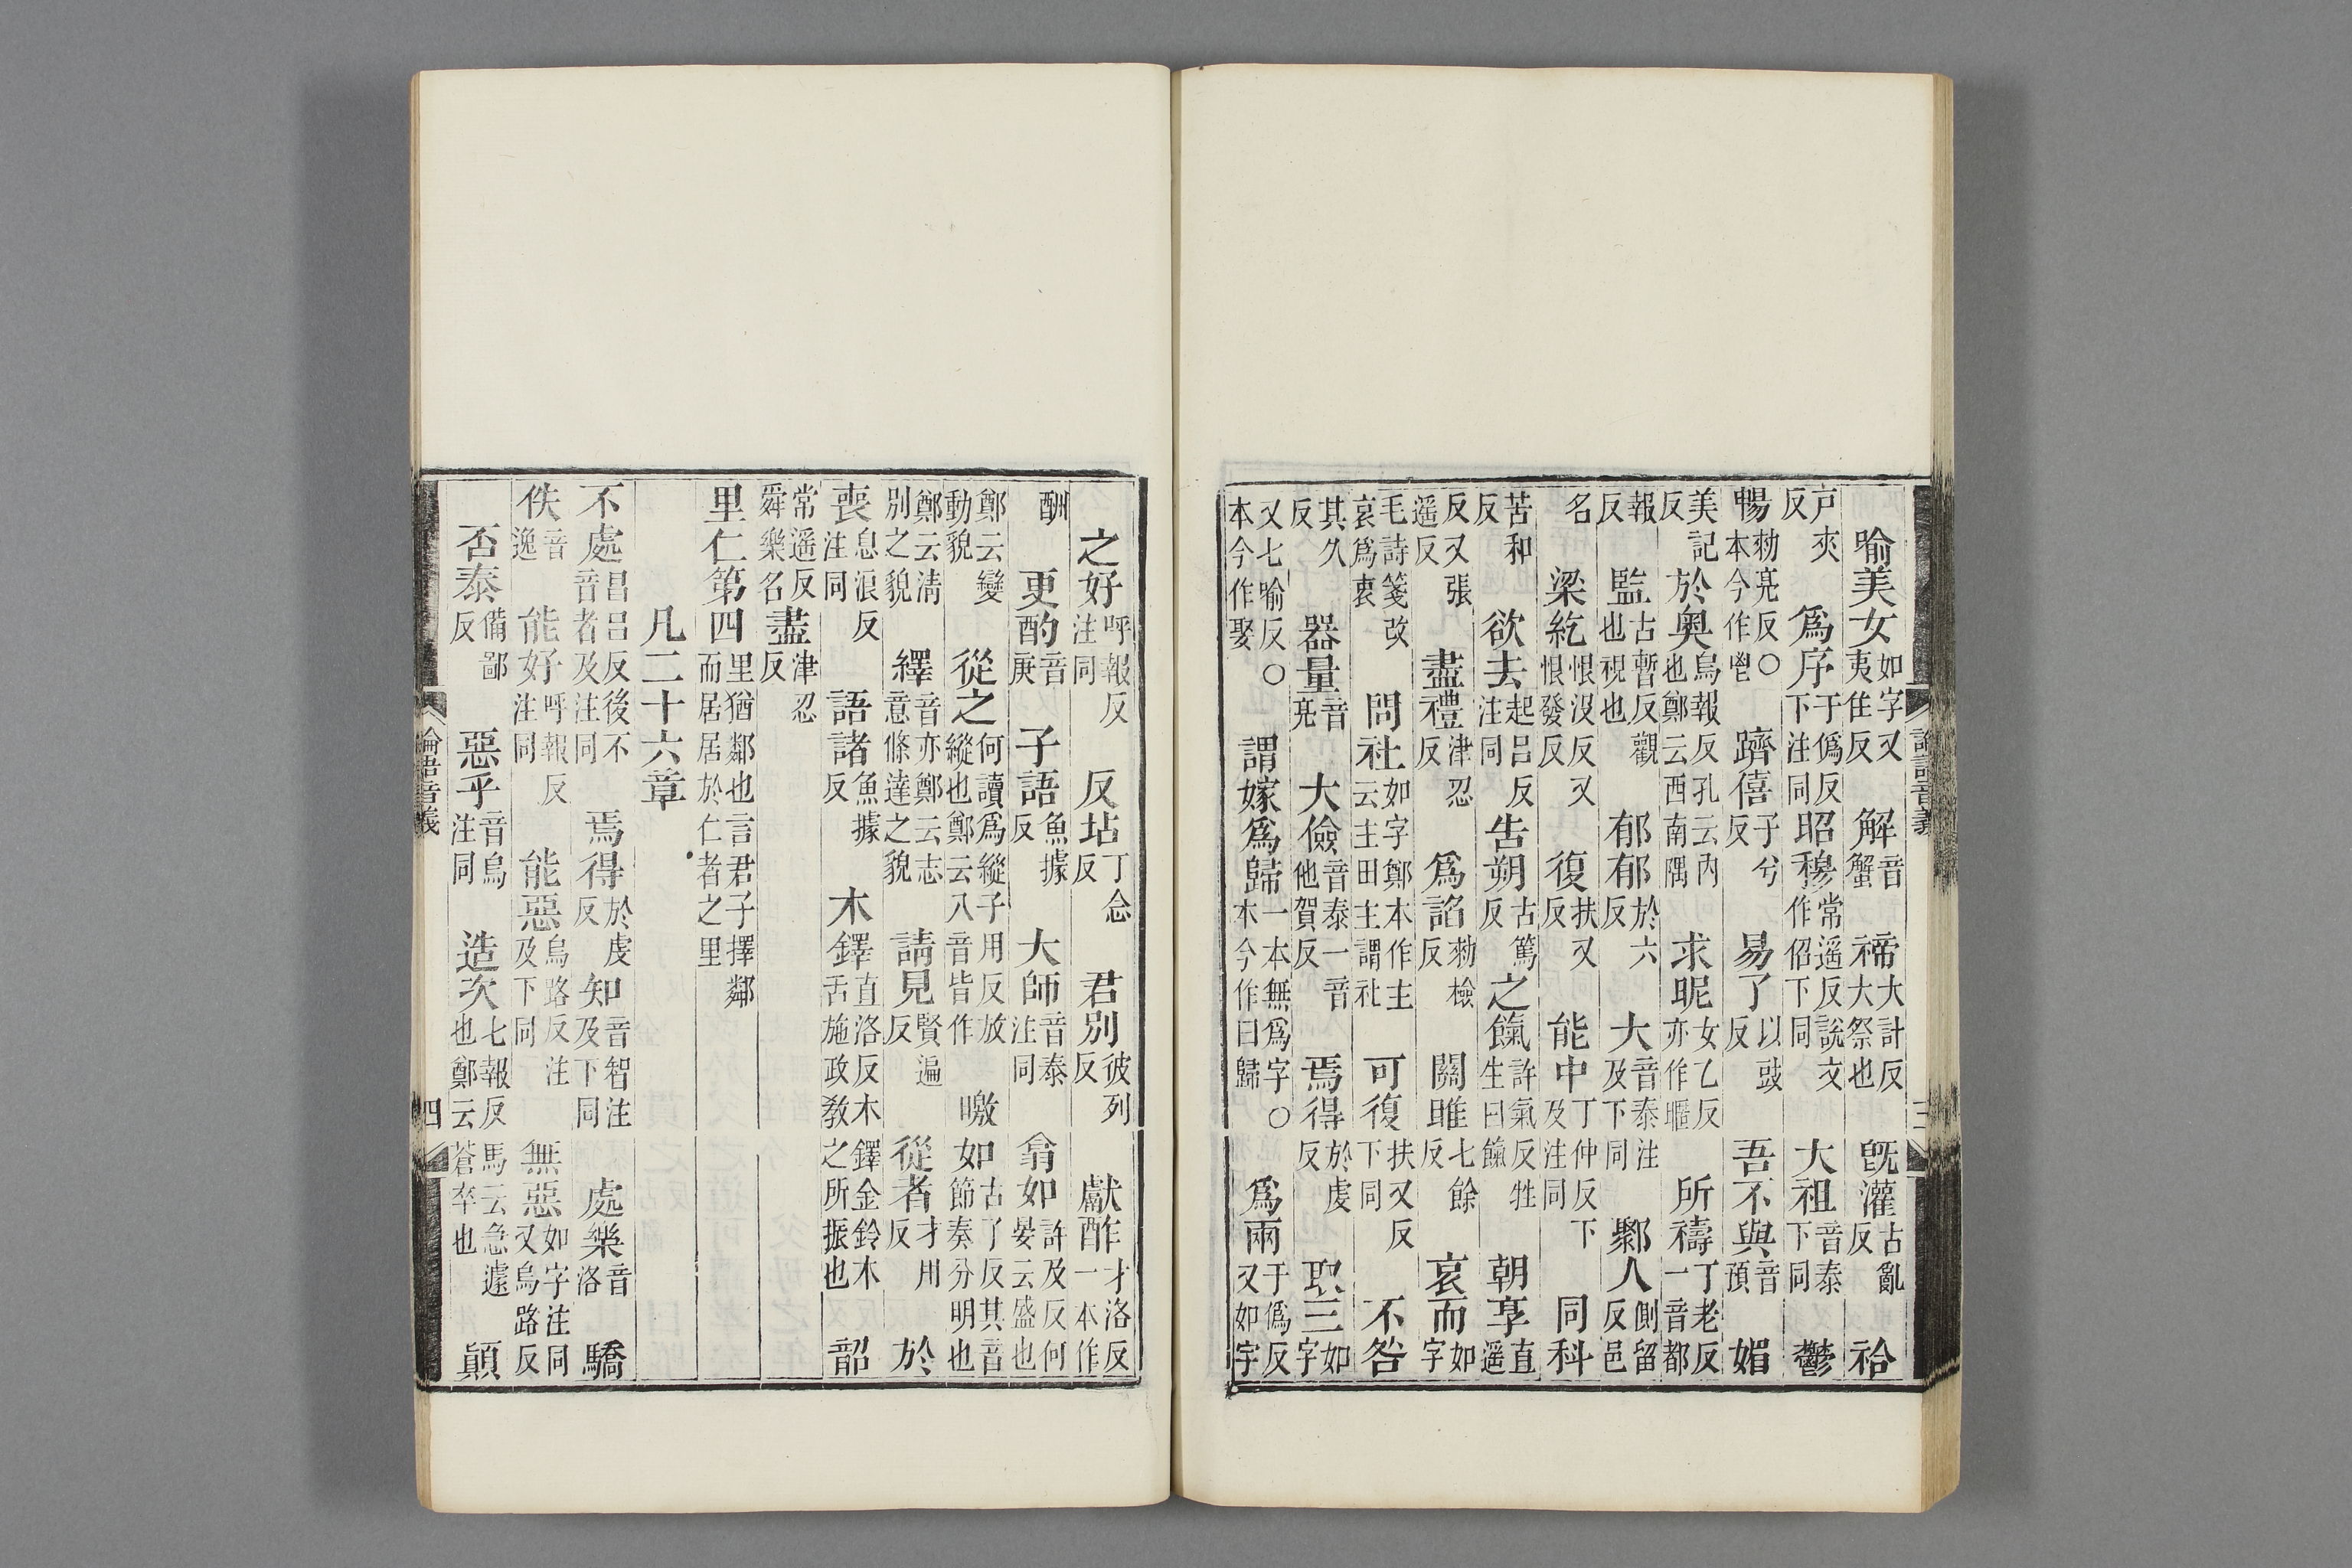 喻美女如字又夷隹反解音蟹禘大計反大祭也既灌古亂反祫
戶夾反爲序于僞反下注同昭穆常遥反說文作佋下同大祖音泰下同鬱
暢勑亮反○本今作鬯躋僖子兮反易了以豉反吾不與音預媚
美記反於奧烏報反孔云內也鄭云西南隅求昵女乙反亦作暱所禱丁老反一音都
報反監古暫反觀也視也郁郁於六反大音泰注及下同鄹人側留反邑
名梁紇恨沒反又恨發反復扶又反能中丁仲反下及注同同科
苦和反欲去起呂反注同告朔古篤反之餼許氣反牲生曰餼朝享直遥
反又張遥反盡禮津忍反爲諂勑檢反關雎七餘反哀而如字
毛詩箋改哀爲衷問社如字鄭本作主云主田主謂社可復扶又反下同不咎
其久反器量音亮大儉音泰一音他賀反焉得於虔反取三如字
又七喻反○本今作娶謂嫁爲歸一本無爲字○本今作曰歸爲兩于僞反又如字
論語音義
之好呼報反注同反坫丁念反君別彼列反獻酢才洛反一本作
酬更酌音庚子語魚據反大師音泰注同翕如許及反何晏云盛也
鄭云變動貌從之何讀爲縱子用反放縱也鄭云八音皆作皦如古了反其音節奏分明也
鄭云清別之貌繹音亦鄭云志意條達之貌請見賢遍反從者才用反於
喪息浪反注同語諸魚據反木鐸直洛反木鐸金鈴木舌施政教之所振也韶
常遥反舜樂名盡津忍反
里仁第四里猶鄰也言君子擇鄰而居居於仁者之里
凡二十六章
不處昌呂反後不音者及注同焉得於虔反知音智注及下同處樂音洛驕
佚音逸能好呼報反注同能惡烏路反注及下同無惡如字注同又烏路反
否泰備鄙反惡乎音烏注同造次七報反馬云急遽也鄭云蒼卒也顛
論語音義 四